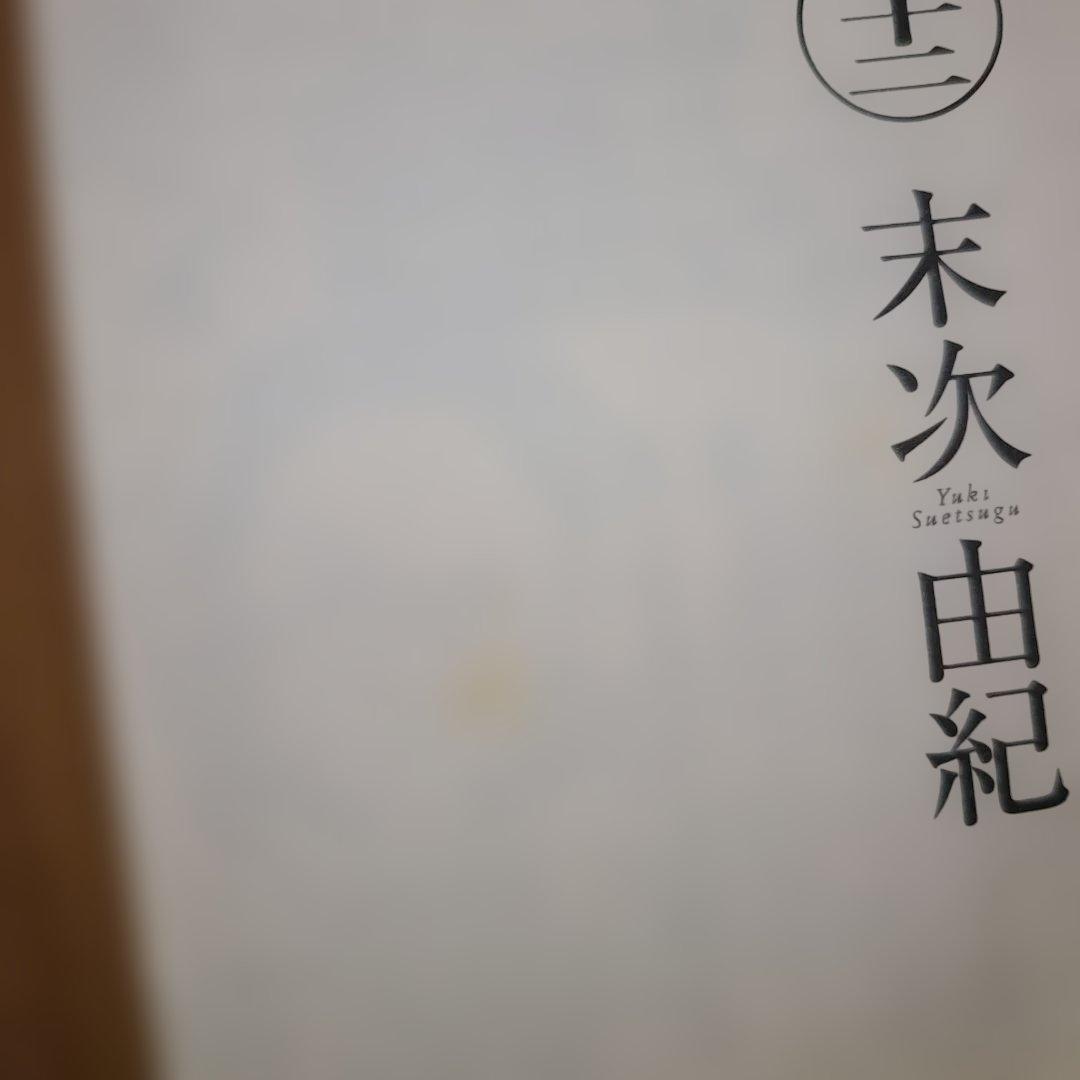 十二
末次由紀
Yuki
Suetsugu